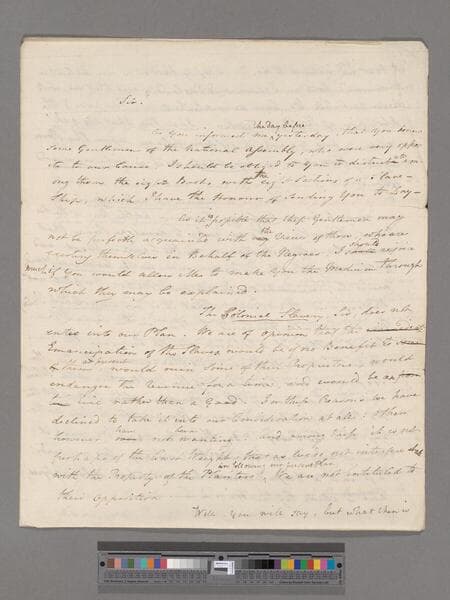 Sir.
the day before
As You informed me, yesterday, that You know
some Gentlemen of the National Assembly, who were very oppo-
site to our Cause, I should be obliged to You to distribute am-
ong them the eight Books, with the eight Sections of a Slave-
Ship, which I have the Honour of sending You to Day—
As it is possible that these Gentlemen may
not be perfectly acquainted with the Views of those, who are
exerting themselves in Behalf of the Negroes, I should esteem
much, if You would allow Me to make You the Medium through
which they may be explained.
The Colonial Slavery, Sir, does not
enter into our Plan. We are of opinion that the
Emancipation of the Slaves would be of no Benefit to
at present
them, would ruin some of their Proprietors, would
endanger the Revenue for a time, and would be
Evil rather than a Good. For these Reasons we have
declined to take it into our Consideration at all; others
however have not been wanting. And among these it is not
that as we do not interfere
in following our present Plan
with the Property of the Planters, We are not intitled to
their Opposition
Well, You will say, but what then is